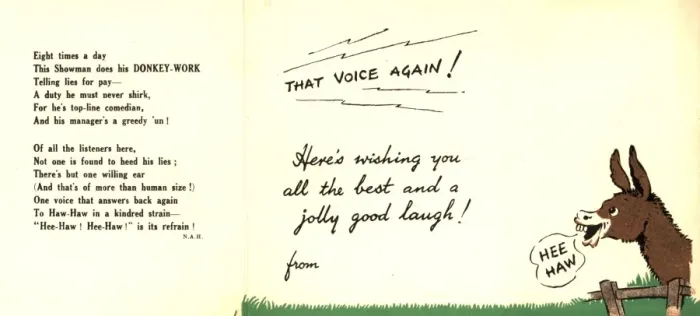 Eight times a day
This Showman does his DONKEY-WORK
Telling lies for pay—
A duty he must never shirk,
For he's top-line comedian,
And his manager's a greedy 'un !
Of all the listeners here,
Not one is found to heed his lies ;
There's but one willing ear
(And that's of more than human size !)
One voice that answers back again
To Haw-Haw in a kindred strain—
"Hee-Haw ! Hee-Haw !" is its refrain !
N.A.H.
THAT VOICE AGAIN!
Here's wishing you
all the best and a
jolly good laugh!
from
HEE
HAW